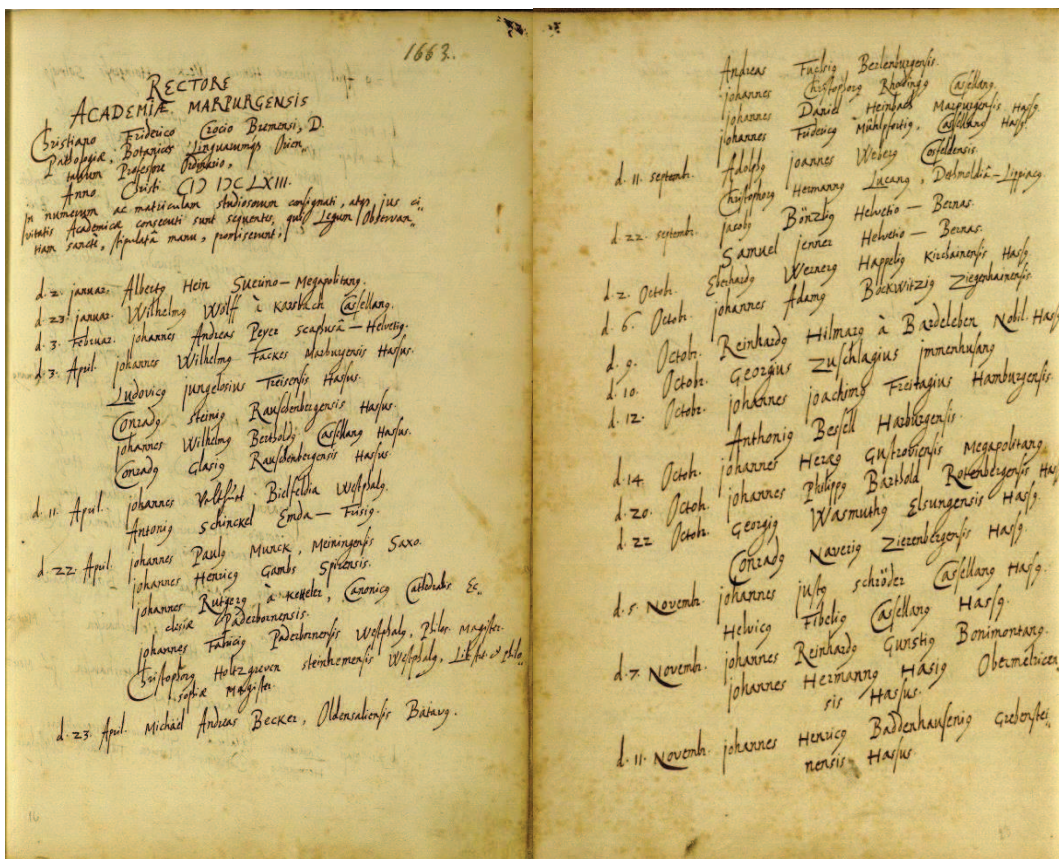 1663.
RECTORE
ACADEMIÆ MARPURGENSIS
Christiano Friderico Crocio Bremensi, D.
Pathologiæ, Botanices Linguarumq; Orien„
talium Professore Ordinario,
Anno Christi CIↃ IↃC LXIII.
in numerum ac matriculam studiosorum consignati, atq; jus ci„
vitatis Academicæ consecuti sunt sequentes, qui Legum observan„
tiam sancte, stipulatâ manu, promiserunt,
d. 2. januar. Albertꝯ Hein Suerino-Megapolitanꝯ.
d. 23. januar. Wilhelmꝯ Wolff à Karsbach Cassellanꝯ.
d. 3. Februar. johannes Andreas Peyer Scaphusâ-Helvetiꝯ.
d. 3. April. johannes Wilhelmꝯ Fackes Marburgensis Hassus.
Ludovicꝯ jungelosius Treisensis Hassus.
Conradꝯ Steiniꝯ Rauschenbergensis Hassus.
johannes Wilhelmꝯ Bertholdꝯ Cassellanꝯ Hassus.
Conradꝯ Glasiꝯ Rauschenbergensis Hassus.
d. 11. April. johannes Bielfeldia Westphalꝯ.
Antoniꝯ Schinckel Emda-Frisiꝯ.
d. 22. April. johannes Paulꝯ Munck, Meiningensis Saxo.
johannes Henricꝯ Gambs Spirensis.
johannes Rutgerꝯ à Ketteler, Canonicꝯ Cathedralis Ec„
clesiæ Paderbornensis.
johannes Fabriciꝯ Paderbornensis Westphalꝯ, Philos. Magister.
Christophorꝯ Holtzgreven Steinhemensis Westphalꝯ, Lib. Art. & Philo„
sophiæ Magister.
d. 23. April. Michael Andreas Becker, Oldensaliensis Batavꝯ.
16
Andreas Berlenburgensis.
johannes Christophorꝯ Rhodingꝯ Cassellanꝯ.
johannes Daniel Heinbach Marpurgensis Hassꝯ.
johannes Fridericꝯ Mühlpfortiꝯ, Cassellanꝯ Hassꝯ.
d. 11. septembr. Adolphꝯ joannes Weberꝯ Cosfeldensis.
Christophorꝯ Hermannꝯ Lucanꝯ, Dethmoldiâ-Lippiacꝯ.
d. 22. septembr. jacobꝯ Bönzliꝯ Helvetio-Bernas.
Samuel jenner Helvetio-Bernas.
d. 2. Octob. Eberhardꝯ Wernerꝯ Happeliꝯ Kirchainensis Hassꝯ.
d. 6. Octobr. johannes Adamꝯ Bockwitziꝯ Ziegenhainensis.
d. 9. Octobr. Reinhardꝯ Hilmarꝯ à Bardeleben Nobil. Hassꝯ
d. 10. Octobr. Georgius Zuschlagius jmmenhusanꝯ
d. 12. Octobr. johannes joachimꝯ Freitagius Hamburgensis.
Anthoniꝯ Bessell Harburgensis.
d. 14. Octob. johannes Herzꝯ Gustroviensis Megapolitanꝯ
d. 20. Octob. johannes Philippꝯ Barthold Rottenbergensis Hass
d. 22 Octobr. Georgiꝯ Wasmuthꝯ Elsungensis Hassꝯ.
Conradꝯ Naveriꝯ Zierenbergensis Hassꝯ.
d. 5. Novembr. johannes justꝯ Schröder Cassellanꝯ Hassꝯ.
Helvicꝯ Fibeliꝯ Cassellanꝯ Hassꝯ.
d. 7. Novembr. johannes Reinhardꝯ Gunstiꝯ Bonimontanꝯ.
johannes Hermannꝯ Hasiꝯ Obermelricen
sis Hassus.
d. 11. Novembr. johannes Henricꝯ Baddenhauseniꝯ Grebenstei„
nensis Hassus.